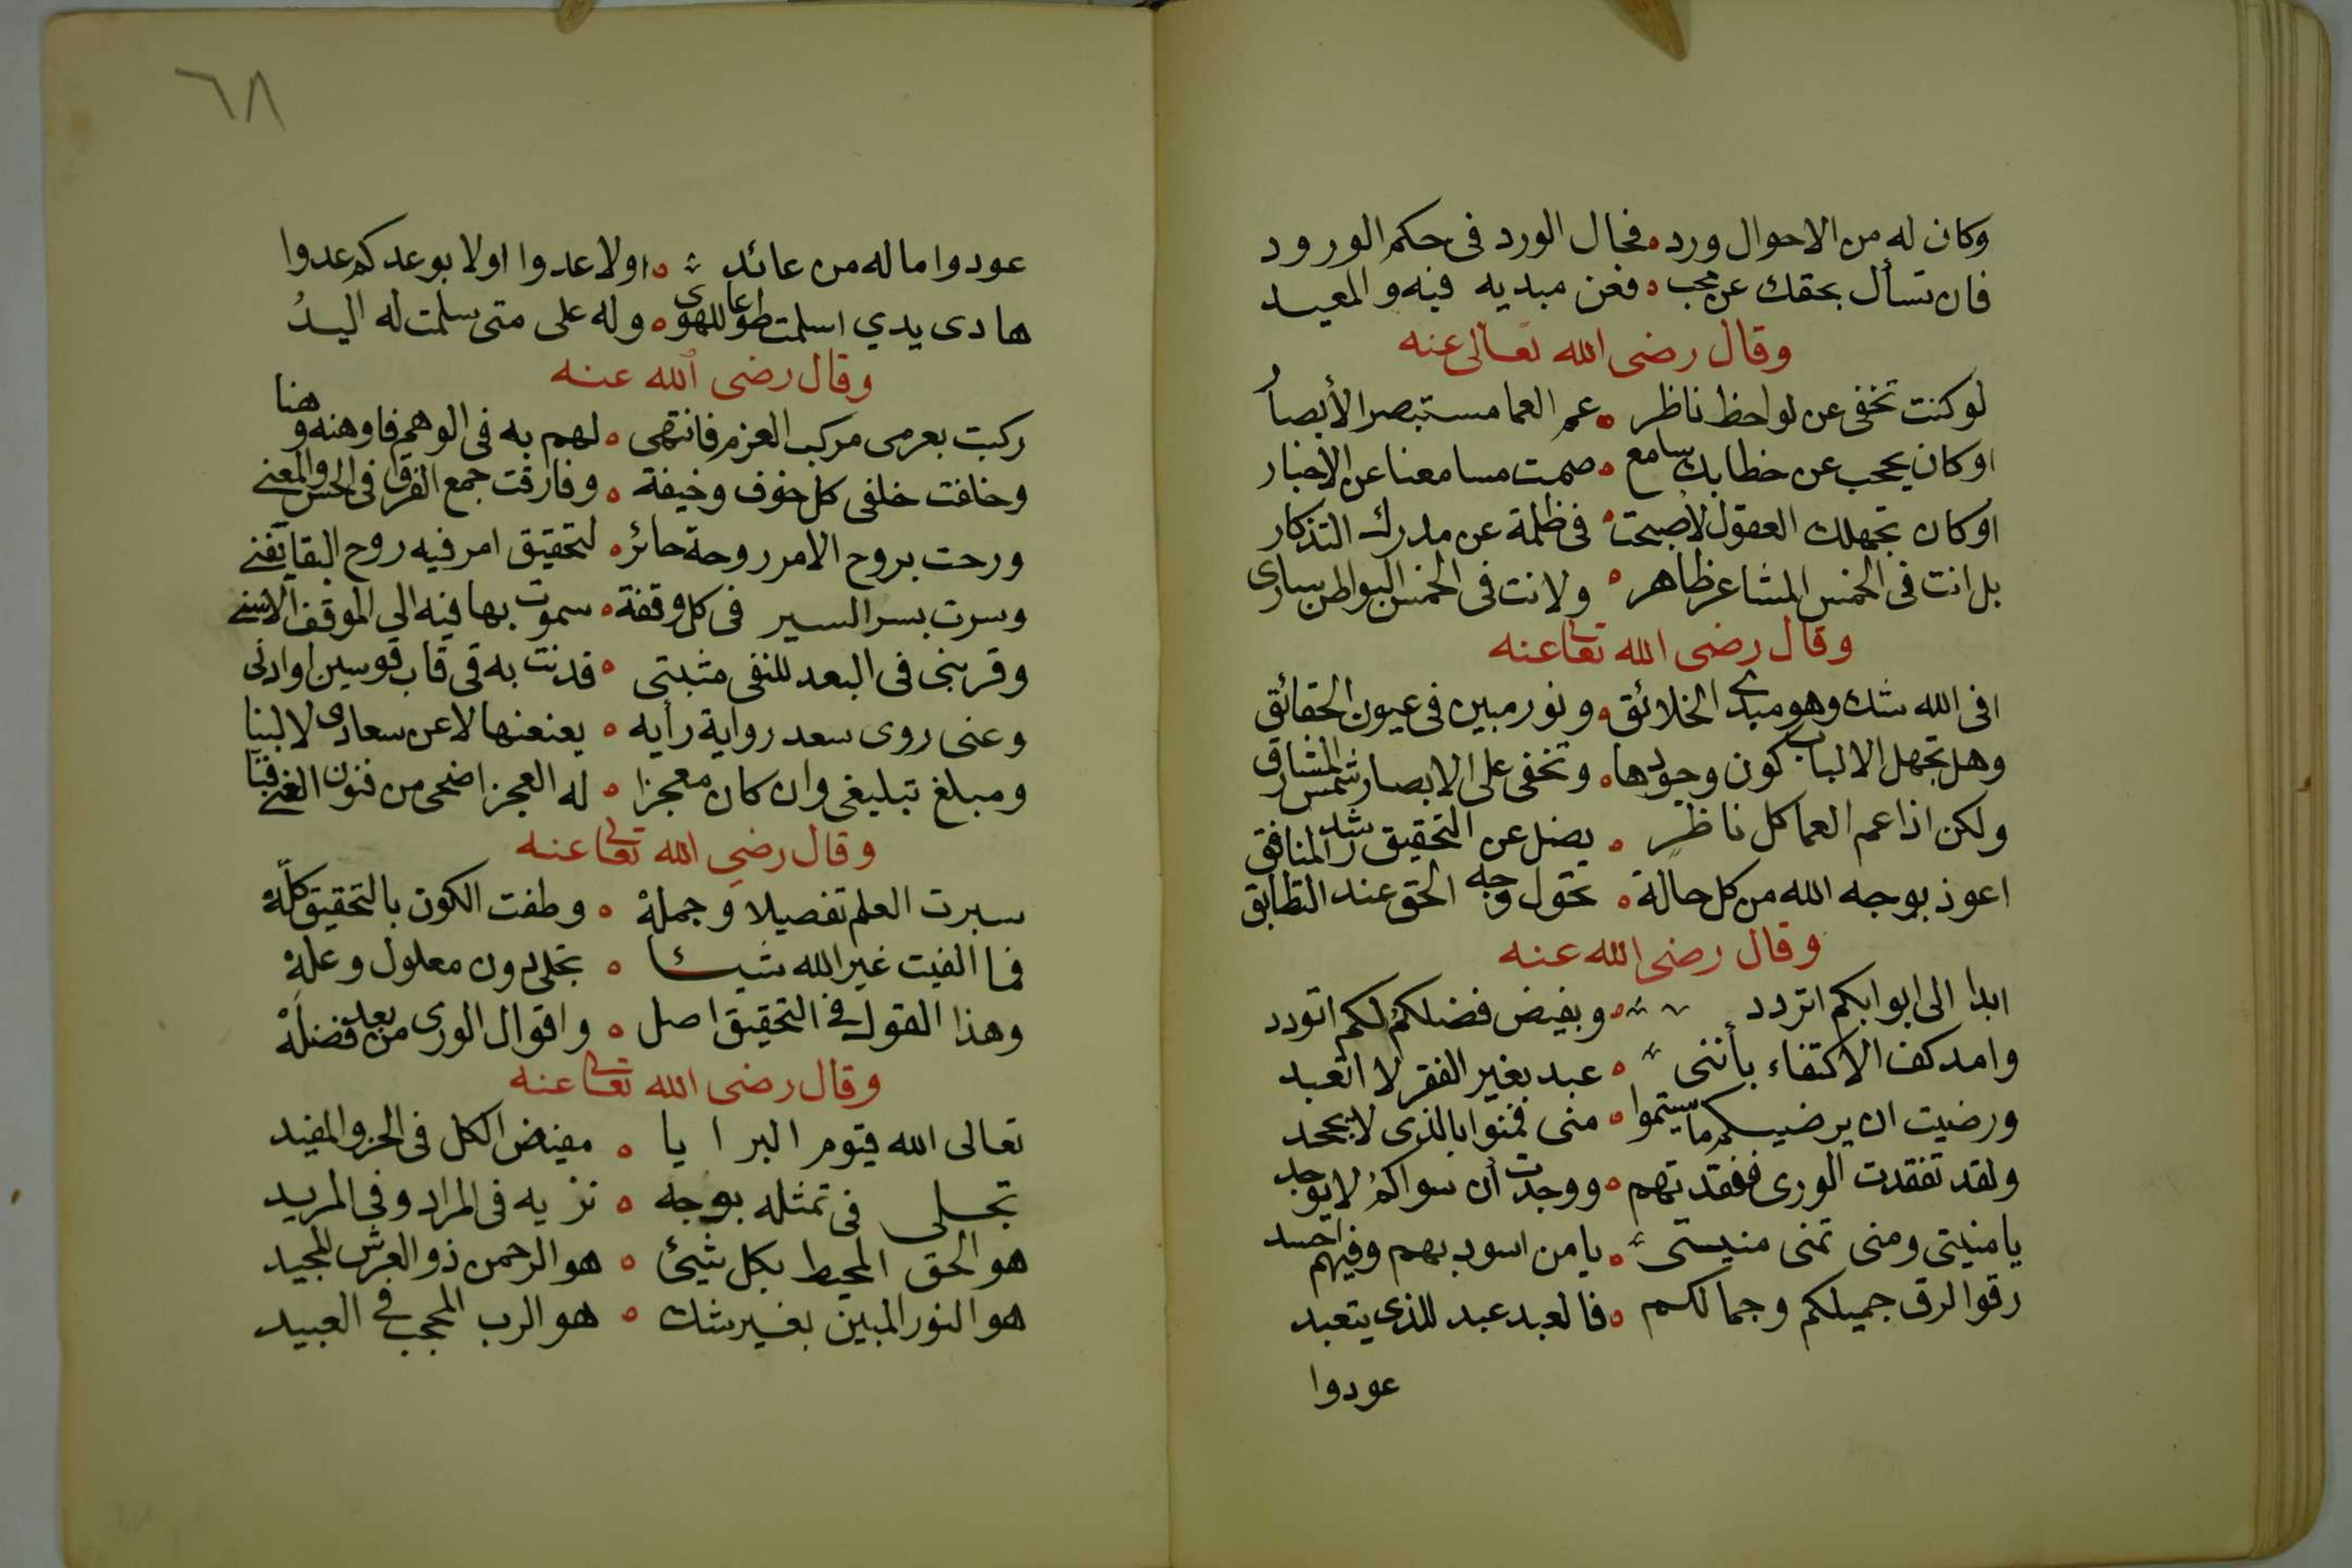 وكان له من الاحوال ورد ه فحال الورد فى حكم الورود
فان تسأل بحقك عن محب ه فعن مبديه فيه والمعيد
وقال رضى الله تعالى عنه
لو كنت تخفى عن لواحظ ناظر ه عم العما مستبصر الأبصار
او كان يحجب عن خطابك سامع ه صمت مسامعنا عن الاخبار
او كان تجهلك العقول لاصبحت ه فى ظلمة عن مدرك التذكار
بل انت فى الخمس المشاعر ظاهر ه ولانت فى الخمس البواطن سارى
وقال رضى الله تعا عنه
افى الله شك وهو مبدى الخلائق ه ونور مبين فى عيون الحقائق
وهل تجهل الالباب كون وجودها ه وتخفى على الابصار شمس المشارق
ولكن اذا عم العما كل ناظر ه يضل عن التحقيق رشد المنافق
اعوذ بوجه الله من كل حالة ه تحول وجه الحق عند التطابق
وقال رضى الله عنه
ابدا الى ابوابكم اتردد ه وبفيض فضلكم لكم اتودد
وامد كف الاكتفاء بأننى ه عبد بغير الفقر لا اتعبد
ورضيت ان يرضيكم ما سيتموا ه منى فمنوا بالذى لا يجحد
ولقد تفقدت الورى ففقدتهم ه ووجدت أن سواكم لا يوجد
يا منيتى ومنى تمنى منيتى ه يا من اسود بهم وفيهم احسد
رقوا لرق جميلكم وجمالكم ه فالعبد عبد للذى يتعبد
عودوا
٦٨
عودوا اما له من عائد ه اولا عدوا اولا بوعدكم عدوا
هادى يدي اسلمت طوعا للهوى ه وله على متى سلمت له اليدُ
وقال رضى الله عنه
ركبت بعزمى مركب العزم فانتهى ه لهم به فى الوهم فاوهنه وهنا
وخافت خلفى كل خوف وخيفة ه وفارقت جمع الفرق فى الحس والمعنى
ورحت بروح الامر روحة حائر ه لتحقيق امر فيه روح البقا يفنى
وسرت بسر السير فى كل وقفة ه سموت بها فيه الي الموقف الاسنى
وقربنى فى البعد للنفى مثبتى ه فدنت به فى قاب قوسين او ادنى
وعنى روى سعد رواية رأيه ه يعنعنها لا عن سعادى لا لبنا
ومبلغ تبليغى وان كان معجزا ه له العجز اضحى من فنون الغنى فنا
وقال رضي الله تعا عنه
سبرت العلم تفصيلا وجملة ه وطفت الكون بالتحقيق كلّه
فما الفيت غير الله شيئا ه تجلى دون معلول وعلة
وهذا القول فى التحقيق اصل ه واقوال الورى من بعد فضله
وقال رضى الله تعا عنه
تعالى الله قيوم البرايا ه مفيض الكل فى الجزو المفيد
تجلى فى تمثله بوجه ه نزيه فى المراد وفى المريد
هو الحق المحيط بكل شيئ ه هو الرحمن ذو العرش المجيد
هو النور المبين بغير شك ه هو الرب المحجب فى العبيد